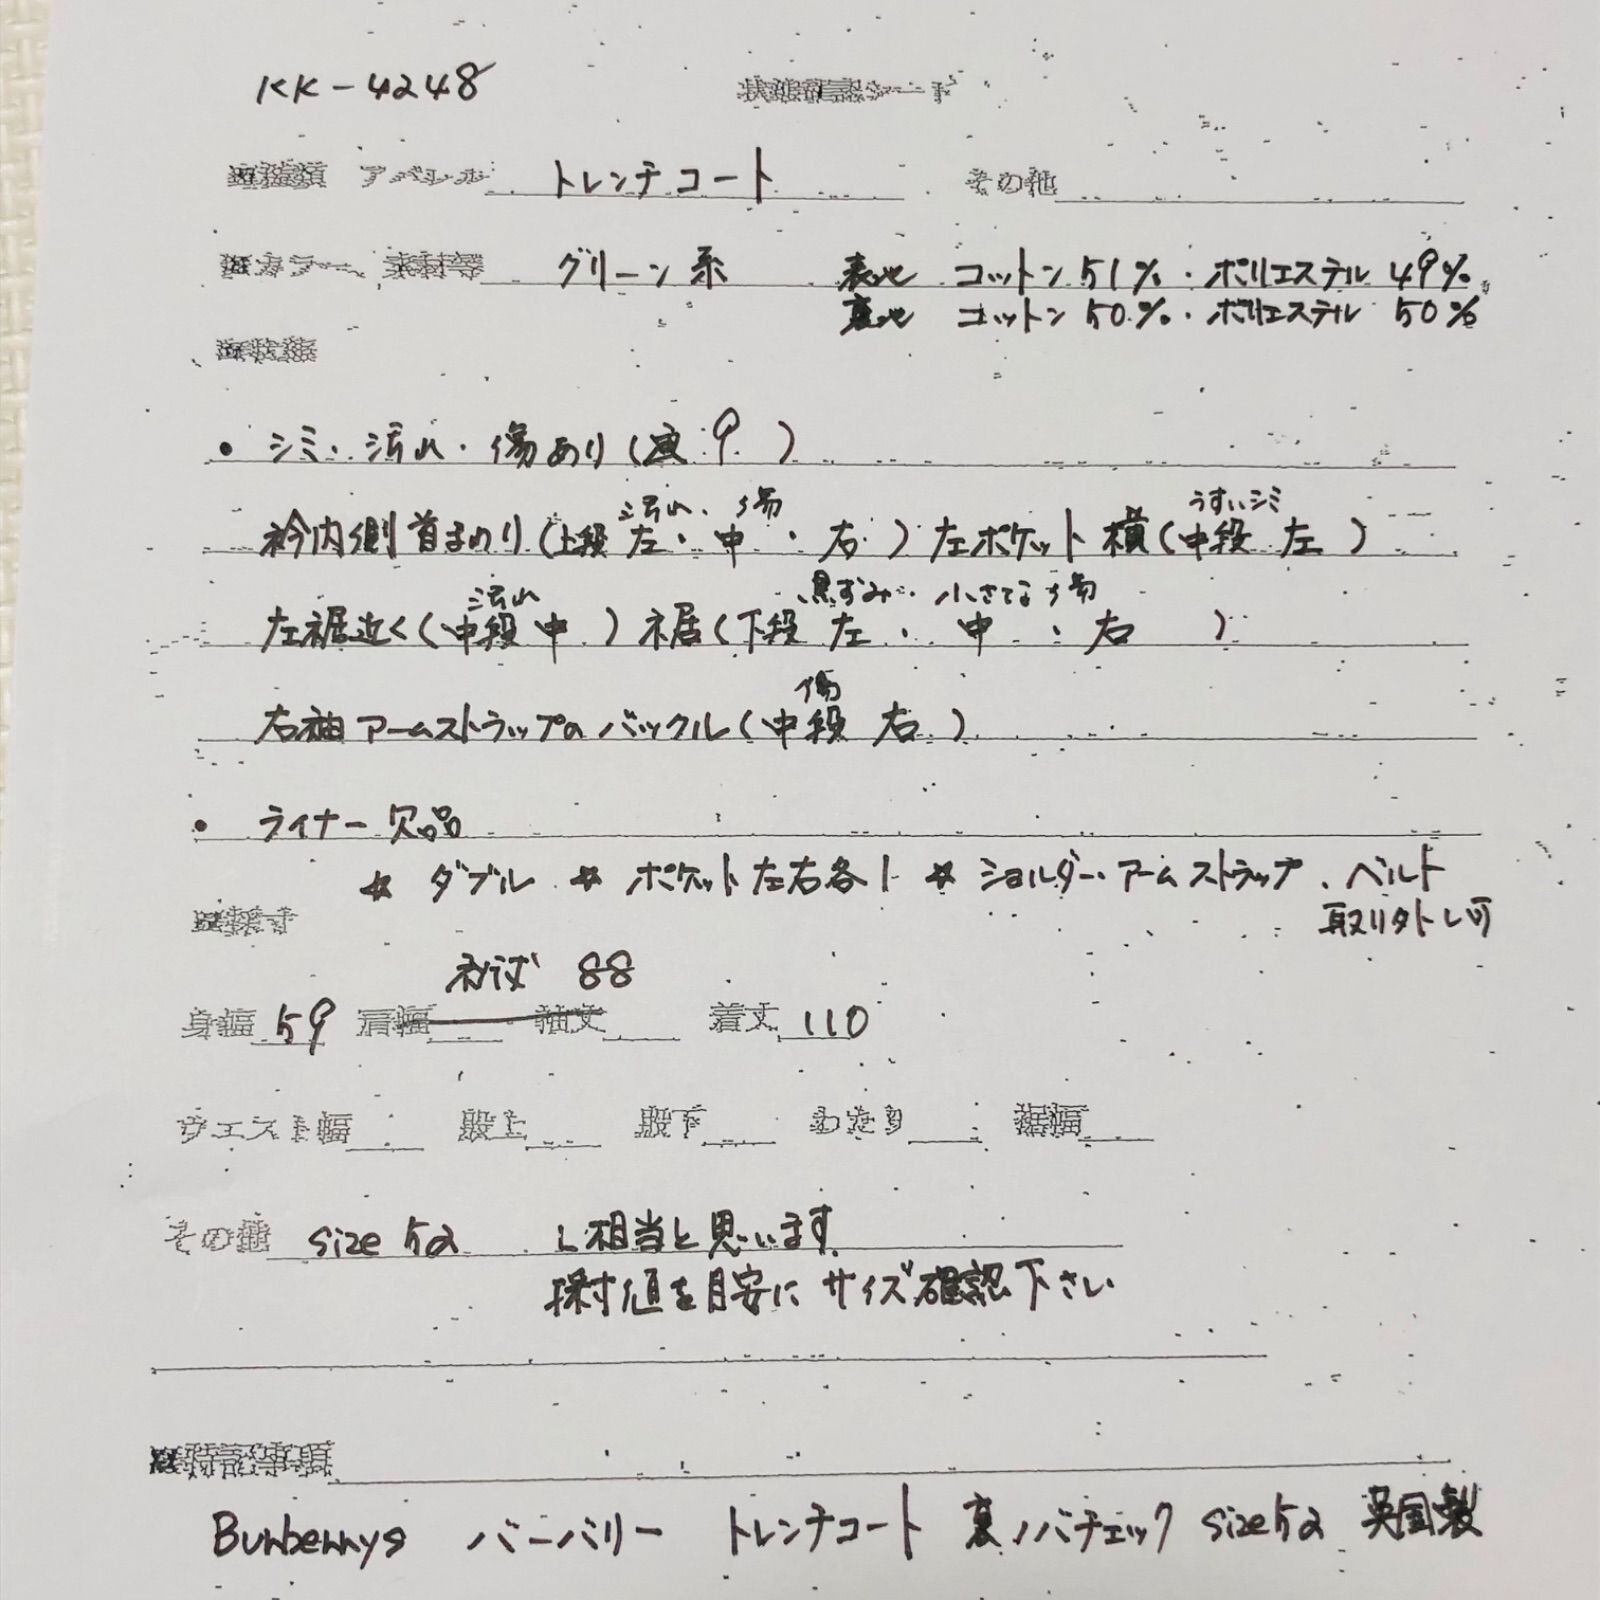 KK-4248 状態確認シート
種類 アパレル トレンチコート その他
カラー、素材等 グリーン系 表地 コットン51%・ポリエステル49%
裏地 コットン50%・ポリエステル50%
状態
・シミ・汚れ・傷あり(画9)
汚れ・傷 うすいシミ
衿内側首まわり(上段 左・中・右)左ポケット横(中段 左)
汚れ 黒ずみ・小さな傷
左裾近く(中段中)裾(下段 左・中・右)
傷
右袖アームストラップのバックル(中段 右)
・ライナー欠品
* ダブル * ポケット左右各1 * ショルダー・アームストラップ、ベルト
採寸 取り外し可
裄丈 88
身幅 59 肩幅 袖丈 着丈 110
ウエスト幅 股上 股下 わたり 裾幅
その他 size 52 L相当と思います
採寸値を目安にサイズ確認下さい
特記事項
Burberrys バーバリー トレンチコート 裏ノバチェック size52 英国製